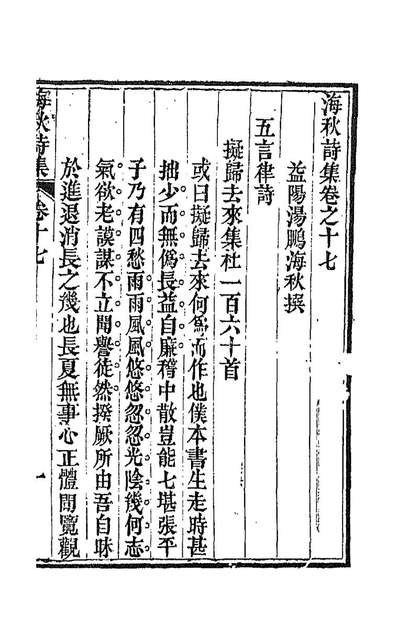 海秋詩集卷之十七
益陽湯鵬海秋撰
五言律詩
擬歸去來集杜一百六十首
或曰擬歸去來何爲而作也僕本書生走時甚
拙少而無僞長益自廉稽中散豈能七堪張平
子乃有四愁雨雨風風悠悠忽忽光陰幾何志
氣欲老謨謀不立聞譽徒然揆厥所由吾自昧
於進退消長之幾也長夏無事心正體閒覽觀
海秋詩集
卷十七
一